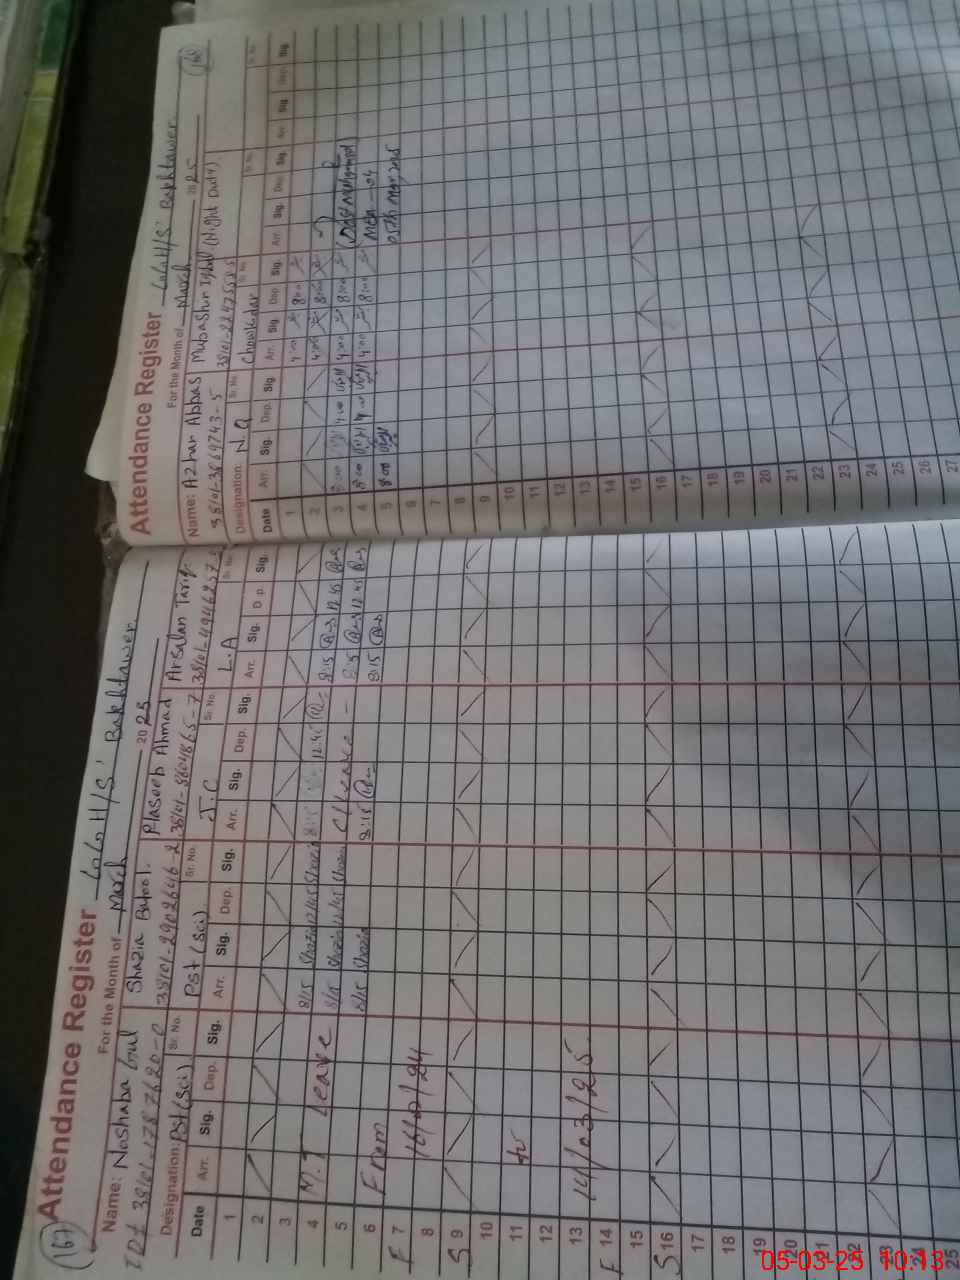 (167)
Attendance Register GGHS' Bakhtawer
For the Month of March 2025
Name: Noshaba Gul Shazia Batool. Haseeb Ahmad Arsalan Tariq
38101-2902646-2
Designation: Pst (Sci) Sr. No. Pst (Sci) Sr. No. J.C Sr. No. L.A Sr. No.
Date Arr. Sig. Dep. Sig. Arr. Sig. Dep. Sig. Arr. Sig. Dep. Sig. Arr. Sig. Dep. Sig.
1
2
3 8/15 Shazia 12/45 Shazia 8:15 12:45 8:15 12:45
4 M.T Leave 8/15 Shazia 12/45 Shazia C/Leave - 8:15 12:45
5 8/15 Shazia 8:15 8:15
6 From
F 7
8 16/12/24
S 9
10
11 to
12
13
F 14 14/03/25.
15
S 16
17
18
19
20
21
22
23
24
25
Attendance Register GGHS' Bakhtawer (168)
For the Month of March 2025
Name: Azhar Abbas Mubashir Iqbal (Night Duty)
Designation: N.Q Sr. No. Chowkidar Sr. No. Sr. No. Sr. No.
Date Arr. Sig. Dep. Sig. Arr. Sig. Dep. Sig. Arr. Sig. Dep. Sig. Arr. Sig. Dep. Sig.
1 4:00 8:00
2 4:00 8:00
3 8:00 4:00 4:00 8:00 (Dost Muhammad)
4 8:00 4:00 4:00 8:00 MEA
5 8:00 05th Mar 2025
6
7
8
9
10
11
12
13
14
15
16
17
18
19
20
21
22
23
24
25
26
27
05-03-25 10:13